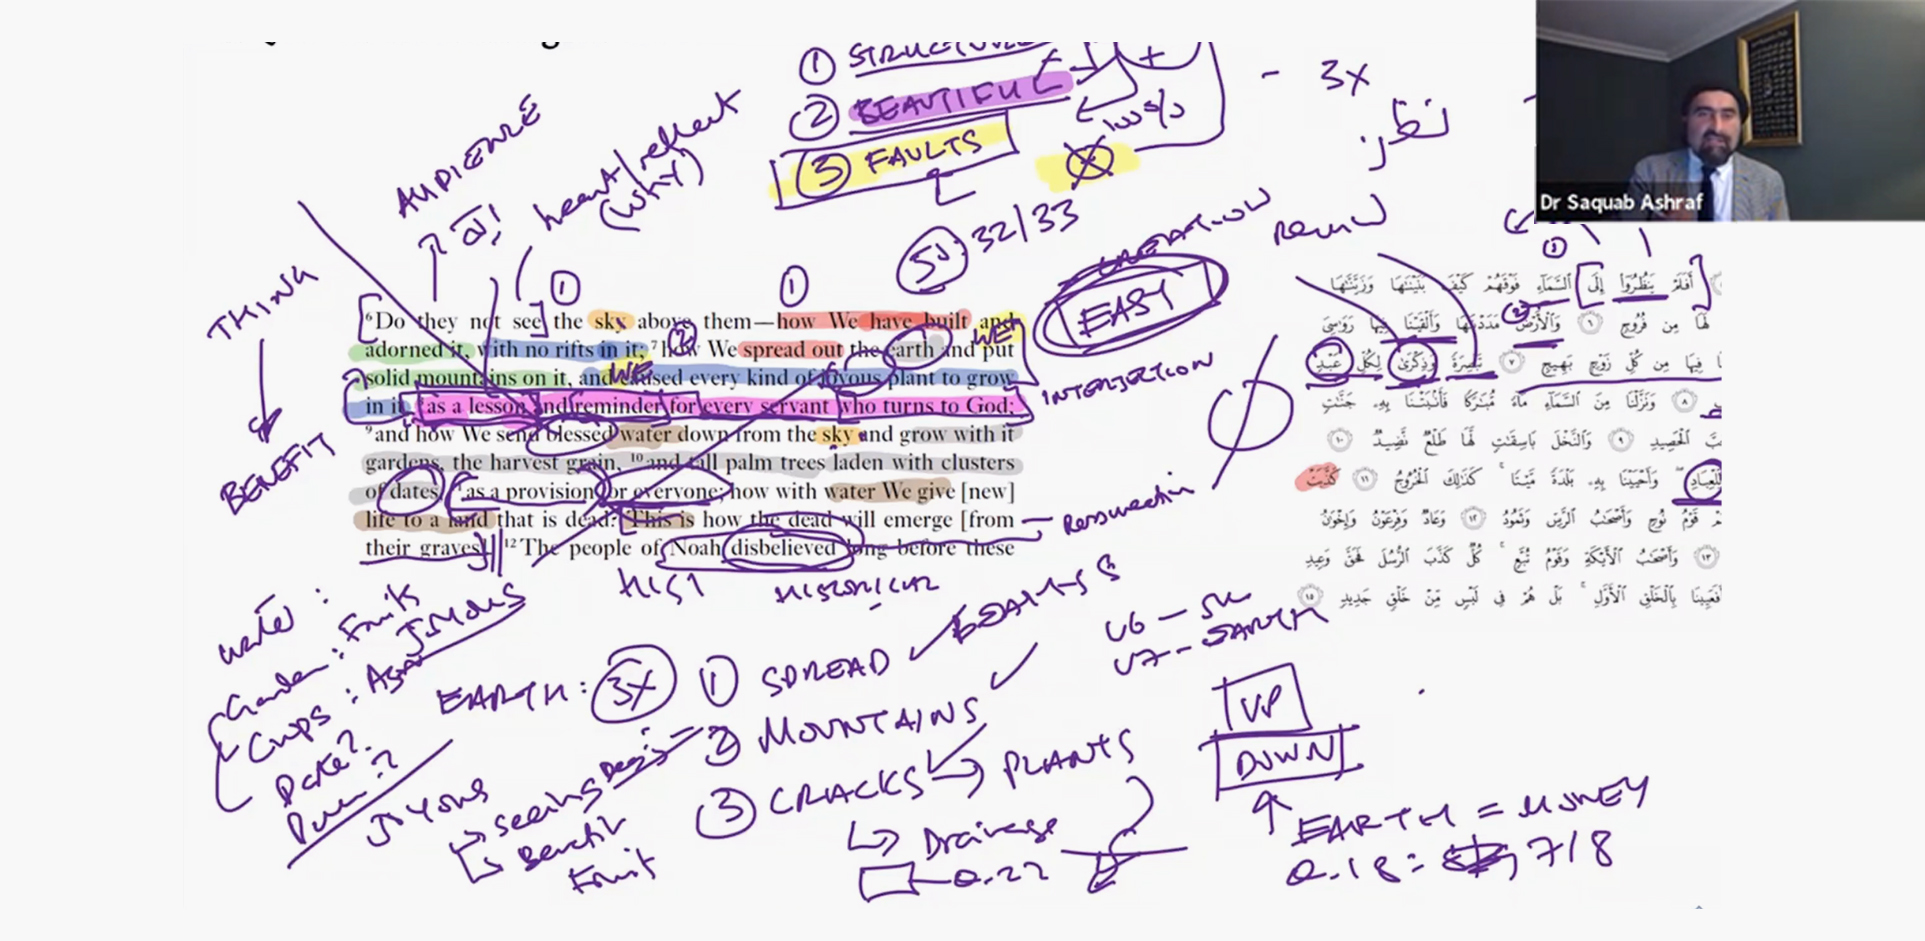 ① STRUCTURE
② BEAUTIFUL
③ FAULTS
+
100%
- 3X
نظر
Dr Saquab Ashraf
AUDIENCE
heart/reflect
(why)
50: 32/33
THING
BENEFIT
①
①
EASY
INTERJECTION
⁶Do they not see the sky above them—how We have built and
adorned it, with no rifts in it; ⁷how We spread out the earth and put
solid mountains on it, and caused every kind of joyous plant to grow
in it, ⁸as a lesson and reminder for every servant who turns to God;
⁹and how We send blessed water down from the sky and grow with it
gardens, the harvest grain, ¹⁰and tall palm trees laden with clusters
of dates, ¹¹as a provision for everyone; how with water We give [new]
life to a land that is dead? This is how the dead will emerge [from
their graves]. ¹²The people of Noah disbelieved long before these
WE
WE
②
Resurrection
HIST
HISTORICAL
①
②
أَفَلَمْ يَنظُرُوٓا۟ إِلَى ٱلسَّمَآءِ فَوْقَهُمْ كَيْفَ بَنَيْنَـٰهَا وَزَيَّنَّـٰهَا
لَهَا مِن فُرُوجٍ ٦ وَٱلْأَرْضَ مَدَدْنَـٰهَا وَأَلْقَيْنَا فِيهَا رَوَٰسِىَ
فِيهَا مِن كُلِّ زَوْجٍۭ بَهِيجٍ ٧ تَبْصِرَةً وَذِكْرَىٰ لِكُلِّ عَبْدٍ
٨ وَنَزَّلْنَا مِنَ ٱلسَّمَآءِ مَآءً مُّبَـٰرَكًا فَأَنۢبَتْنَا بِهِۦ جَنَّـٰتٍ
ٱلْحَصِيدِ ٩ وَٱلنَّخْلَ بَاسِقَـٰتٍ لَّهَا طَلْعٌ نَّضِيدٌ ١٠
لِّلْعِبَادِ وَأَحْيَيْنَا بِهِۦ بَلْدَةً مَّيْتًا كَذَٰلِكَ ٱلْخُرُوجُ ١١ كَذَّبَتْ
قَوْمُ نُوحٍ وَأَصْحَـٰبُ ٱلرَّسِّ وَثَمُودُ ١٢ وَعَادٌ وَفِرْعَوْنُ وَإِخْوَٰنُ
١٣ وَأَصْحَـٰبُ ٱلْأَيْكَةِ وَقَوْمُ تُبَّعٍ كُلٌّ كَذَّبَ ٱلرُّسُلَ فَحَقَّ وَعِيدِ
أَفَعَيِينَا بِٱلْخَلْقِ ٱلْأَوَّلِ بَلْ هُمْ فِى لَبْسٍ مِّنْ خَلْقٍ جَدِيدٍ ١٥
water :
Garden : Fruits
Crops :
Date?
JOYOUS
Joyous
seeing
Fruit
EARTH : 3X
① SPREAD
② MOUNTAINS
③ CRACKS → PLANTS
Drainage
Q.22
V7 - EARTH
UP
DOWN
EARTH = MONEY
Q.18: 7/8